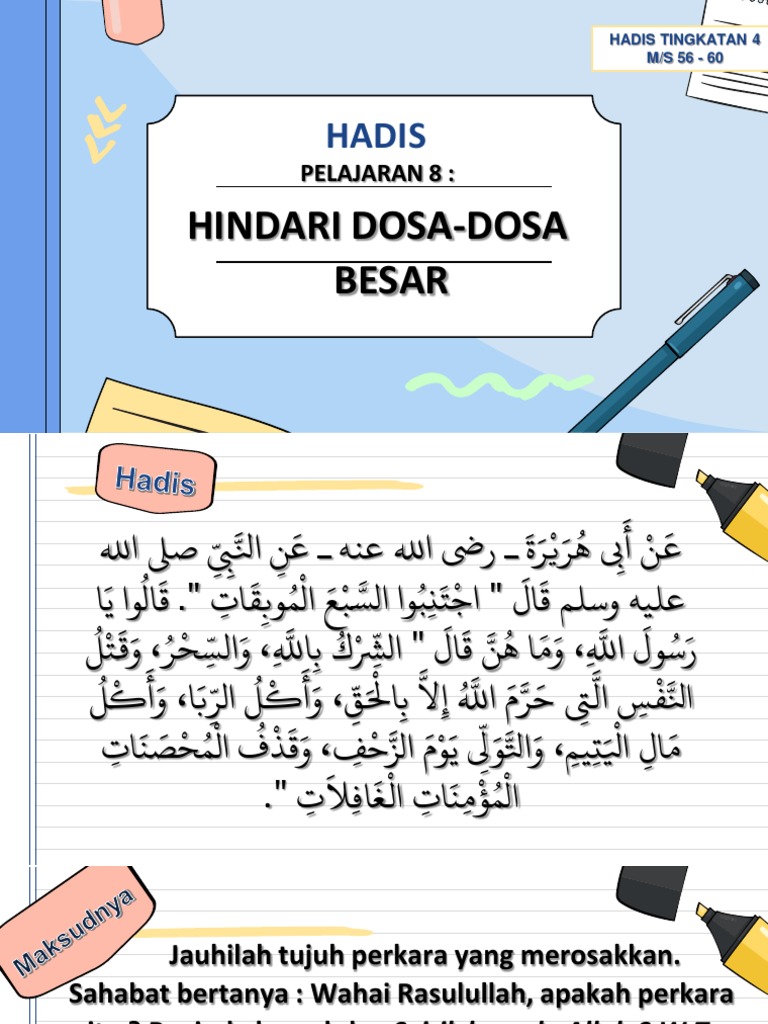 HADIS TINGKATAN 4
M/S 56 - 60
HADIS
PELAJARAN 8 :
HINDARI DOSA-DOSA
BESAR
Hadis
عَنْ أَبِي هُرَيْرَةَ ـ رضى الله عنه ـ عَنِ النَّبِيِّ صلى الله
عليه وسلم قَالَ " اجْتَنِبُوا السَّبْعَ الْمُوبِقَاتِ ". قَالُوا يَا
رَسُولَ اللَّهِ، وَمَا هُنَّ قَالَ " الشِّرْكُ بِاللَّهِ، وَالسِّحْرُ، وَقَتْلُ
النَّفْسِ الَّتِي حَرَّمَ اللَّهُ إِلاَّ بِالْحَقِّ، وَأَكْلُ الرِّبَا، وَأَكْلُ
مَالِ الْيَتِيمِ، وَالتَّوَلِّي يَوْمَ الزَّحْفِ، وَقَذْفُ الْمُحْصَنَاتِ
الْمُؤْمِنَاتِ الْغَافِلاَتِ ".
Maksudnya
Jauhilah tujuh perkara yang merosakkan.
Sahabat bertanya : Wahai Rasulullah, apakah perkara